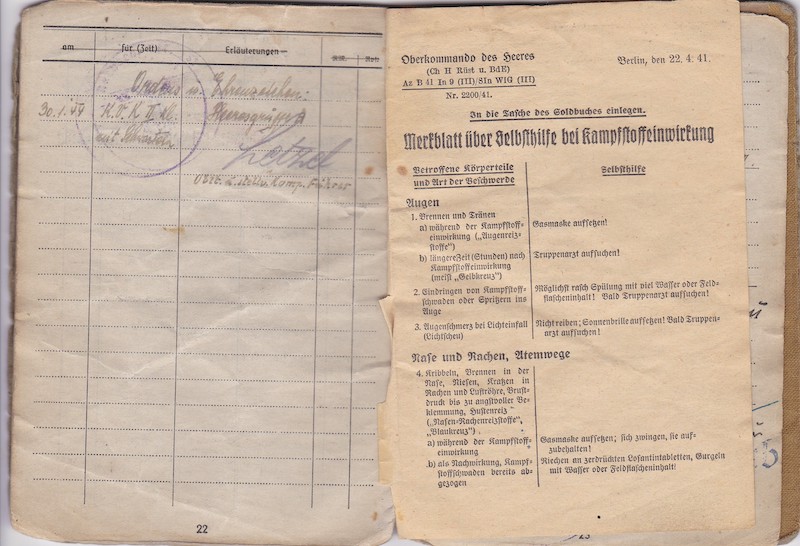 am für (Zeit) Erläuterungen
Orden u. Ehrenzeichen:
30.1.44 K.V.K. II. Kl. Heeresgruppe
mit Schwertern
22
Oberkommando des Heeres
(Ch H Rüst u. BdE)
Az B 41 In 9 (III)/SIn WiG (III)
Nr. 2200/41.
Berlin, den 22. 4. 41.
In die Tasche des Soldbuches einlegen.
Merkblatt über Selbsthilfe bei Kampfstoffeinwirkung
Betroffene Körperteile
und Art der Beschwerde
Selbsthilfe
Augen
1. Brennen und Tränen
a) während der Kampfstoff-
einwirkung („Augenreiz-
stoffe“)
Gasmaske aufsetzen!
b) längere Zeit (Stunden) nach
Kampfstoffeinwirkung
(meist „Gelbkreuz“)
Truppenarzt aufsuchen!
2. Eindringen von Kampfstoff-
schwaden oder Spritzern ins
Auge
Möglichst rasch Spülung mit viel Wasser oder Feld-
flascheninhalt! Bald Truppenarzt aufsuchen!
3. Augenschmerz bei Lichteinfall
(Lichtscheu)
Nicht reiben; Sonnenbrille aufsetzen! Bald Truppen-
arzt aufsuchen!
Nase und Rachen, Atemwege
4. Kribbeln, Brennen in der
Nase, Niesen, Kratzen in
Rachen und Luftröhre, Brust-
druck bis zu angstvoller Be-
klemmung, Hustenreiz
(„Nasen-Rachenreizstoffe“,
„Blaukreuz“)
a) während der Kampfstoff-
einwirkung
Gasmaske aufsetzen; sich zwingen, sie auf-
zubehalten!
b) als Nachwirkung, Kampf-
stoffschwaden bereits ab-
gezogen
Riechen an zerdrückten Losantintabletten, Gurgeln
mit Wasser oder Feldflascheninhalt!